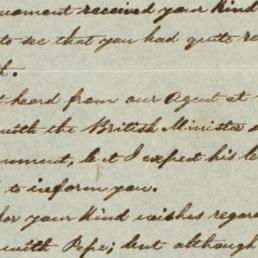 moment received your kind
to see that you had quite re
h.
t heard from our Agent at
with the British Minister
moment, but I expect his le
to inform you.
for your kind wishes regar
with Pepe; but although